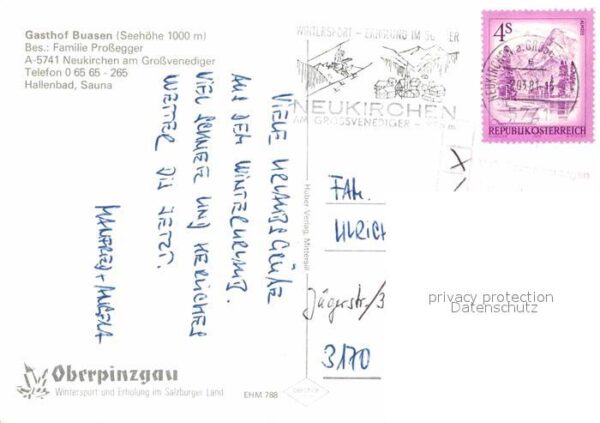 Gasthof Buasen (Seehöhe 1000 m)
Bes.: Familie Proßegger
A-5741 Neukirchen am Großvenediger
Telefon 0 65 65 - 265
Hallenbad, Sauna
VIELE URLAUBSGRÜßE
AUS DEM WINTERURLAUB.
VIEL SCHNEE UND HERRLICHES
WETTER BIS JETZT.
MANFRED +
Oberpinzgau
Wintersport und Erholung im Salzburger Land
EHM 788
Huber Verlag, Mittersill
WINTERSPORT - ERHOLUNG IM SOMMER
NEUKIRCHEN
AM GROSSVENEDIGER
4 S
REPUBLIK ÖSTERREICH
FAM.
ULRICH
Jägerstr. 3
3170
privacy protection
Datenschutz